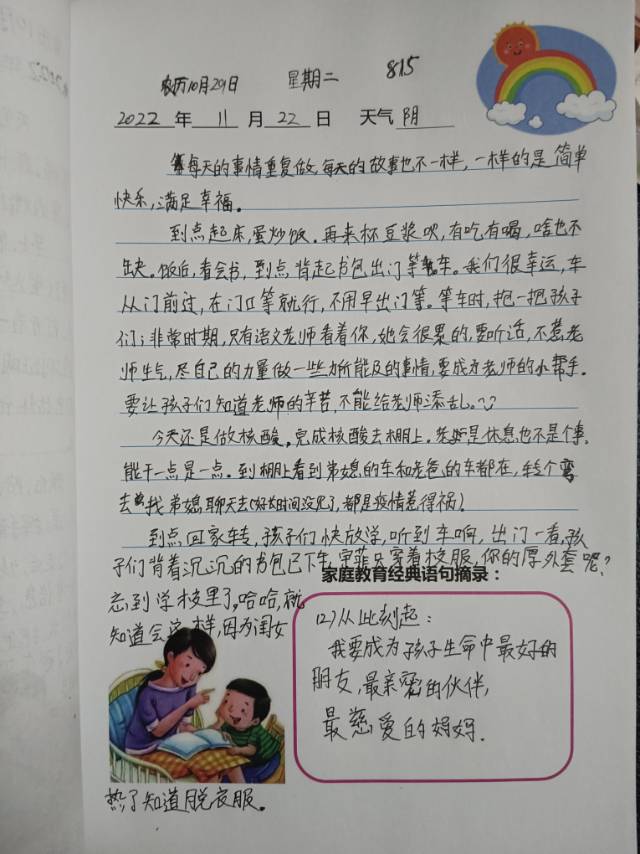 农历10月29日 星期二 815
2022 年 11 月 22 日 天气 阴
每天的事情重复做,每天的故事也不一样,一样的是简单
快乐,满足幸福。
到点起床,蛋炒饭。再来杯豆浆吹,有吃有喝,啥也不
缺。饭后,看会书,到点背起书包出门等车。我们很幸运,车
从门前过,在门口等就行,不用早出门等。等车时,抱一抱孩子
们;非常时期,只有语文老师看着你,她会很累的,要听话,不惹老
师生气,尽自己的力量做一些力所能及的事情,要成为老师的小帮手。
要让孩子们知道老师的辛苦,不能给老师添乱。
今天还是做核酸。完成核酸去棚上。老是休息也不是个事,
能干一点是一点。到棚上看到弟媳的车和老爸的车都在,转个弯
去找弟媳聊天去(好长时间没见了,都是疫情惹得祸)
到点回家转,孩子们快放学,听到车响,出门一看,孩
子们背着沉沉的书包已下车,只穿着校服,你的厚外套呢?
家庭教育经典语句摘录:
忘到学校里了,哈哈,就
知道会这样,因为闺女
热了知道脱衣服。
(2)从此刻起:
我要成为孩子生命中最好的
朋友,最亲密的伙伴,
最慈爱的妈妈.